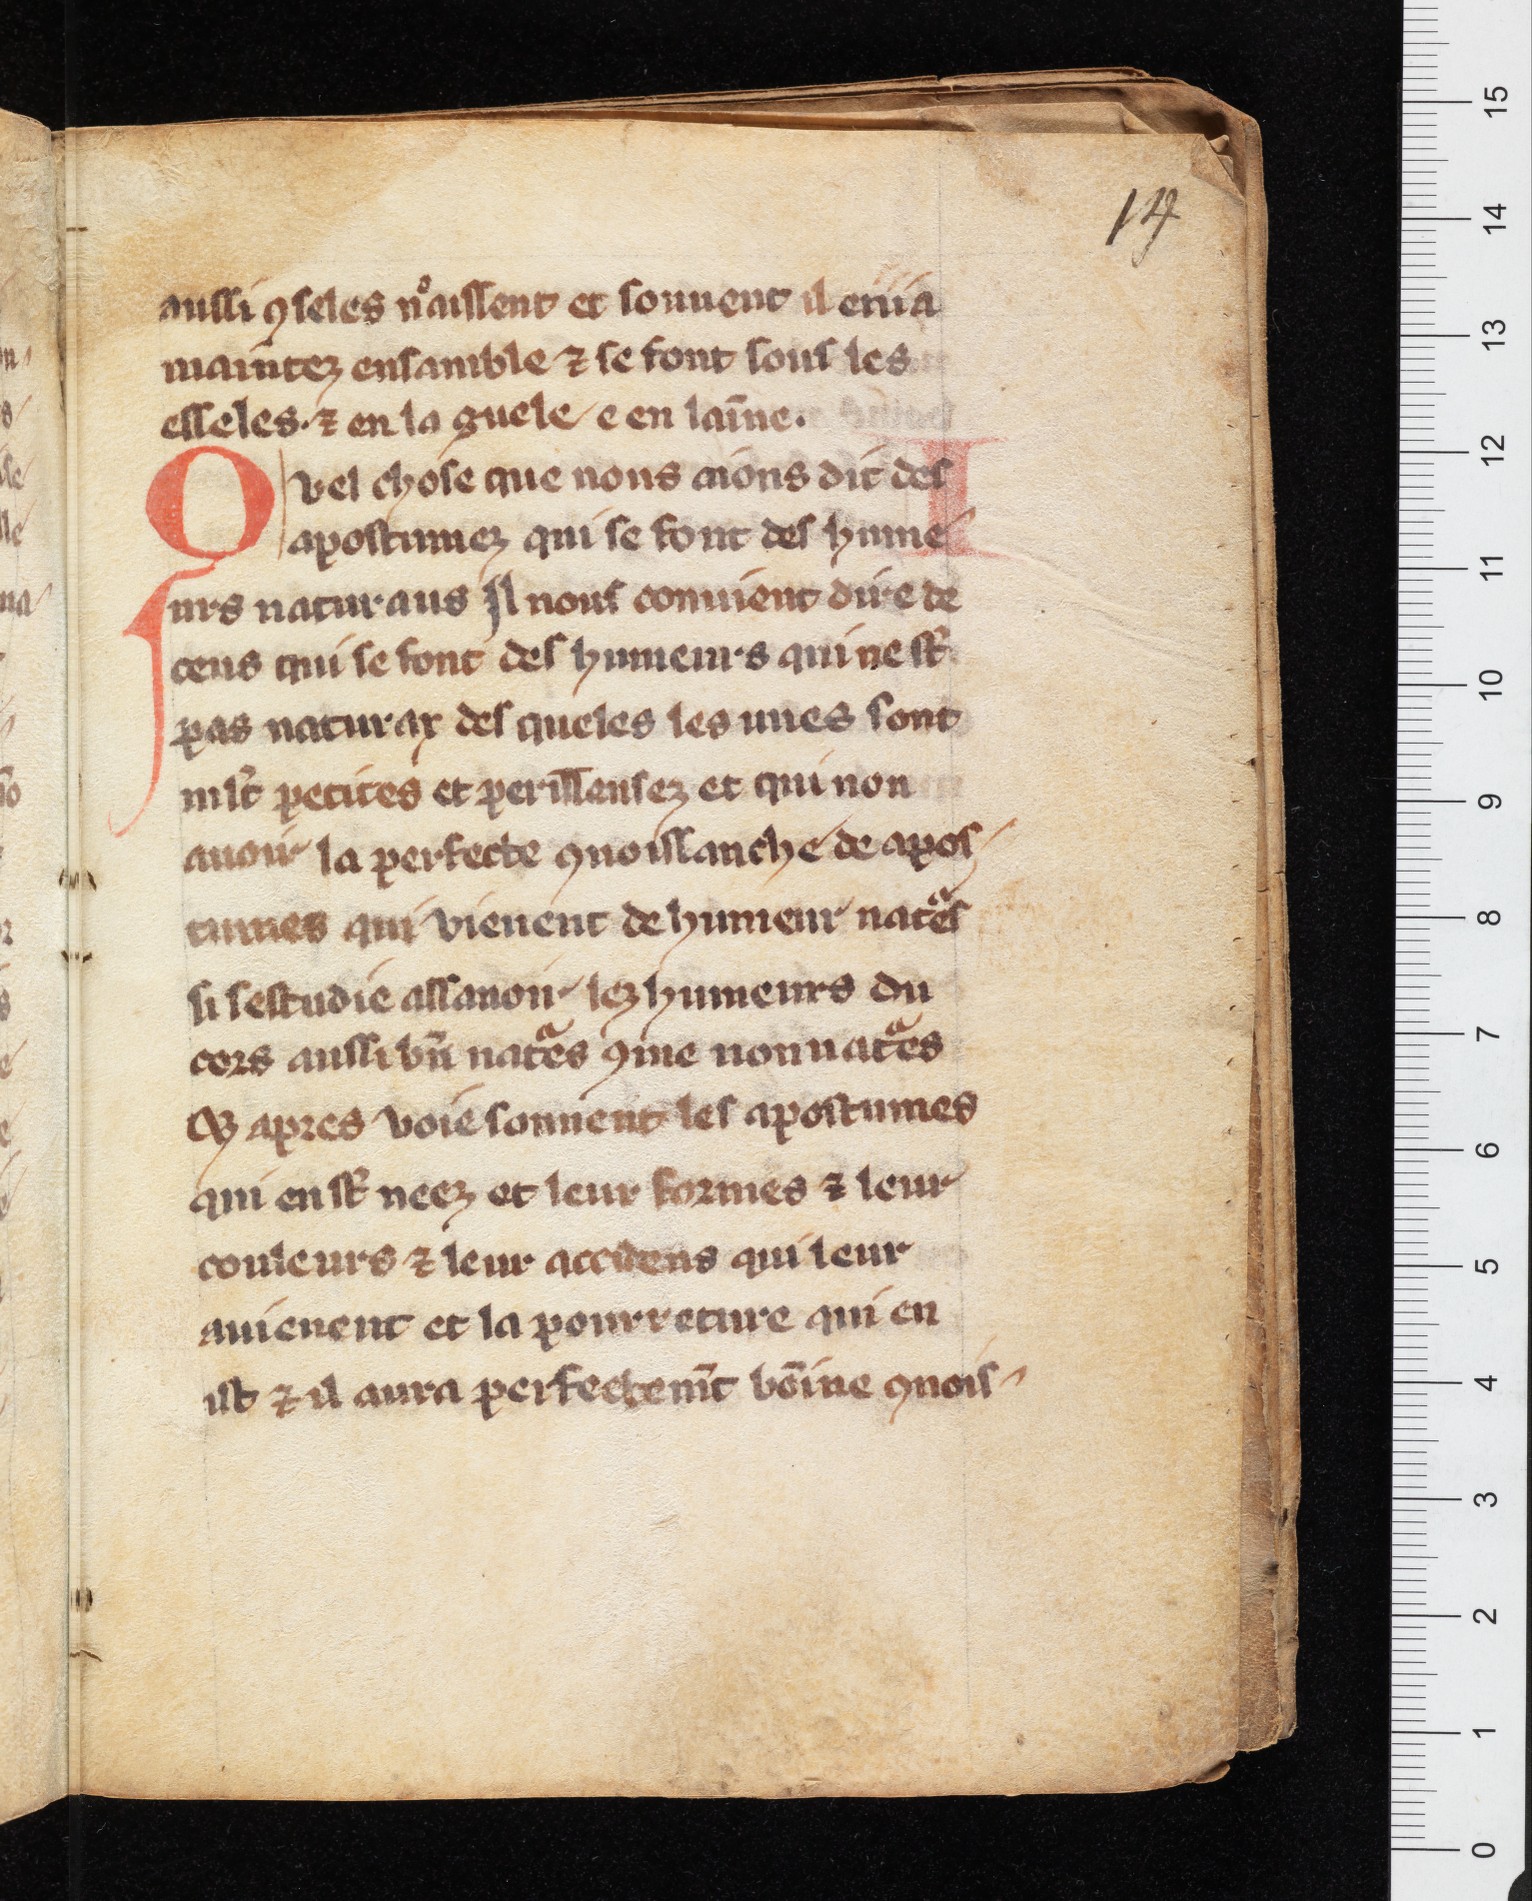 14
aussi ꝯseles nͦaissent et souuent il en i a
maintez ensamble ⁊ se font sous les
esseles. ⁊ en la guele e en laīne.
Qvel chose que nous aions dit des
apostumez qui se font des hume
urs naturaus Il nous conuient dire de
ceus qui se font des humeurs qui ne st̄
pas naturax des queles les unes sont
ml̄t petites et perilleusez et qui non
auoir la perfecte ꝯnoissanche de apos
tumes qui vienent de humeur natᵃes
si sestudie assauoir lez humeurs du
cors aussi bn̄ natᵃes ꝯme non natᵃes
Qꝫ apres voie souuent les apostumes
qui en st̄ neez et leur formes ⁊ leur
couleurs ⁊ leur accidens qui leur
auienent et la pourreture qui en
ist ⁊ il aura perfectemn̄t bōine ꝯnois
0 1 2 3 4 5 6 7 8 9 10 11 12 13 14 15